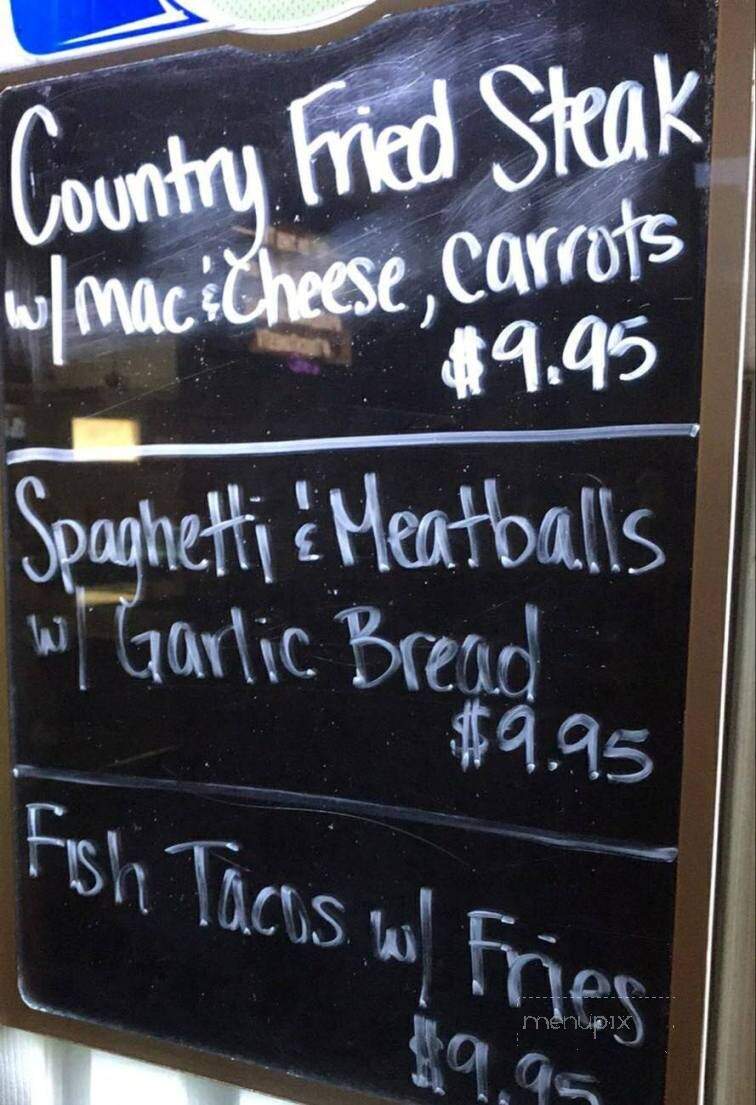 Country Fried Steak
w/ Mac & Cheese, Carrots
$9.95
Spaghetti & Meatballs
w/ Garlic Bread
$9.95
Fish Tacos w/ Fries
menupix
$9.95